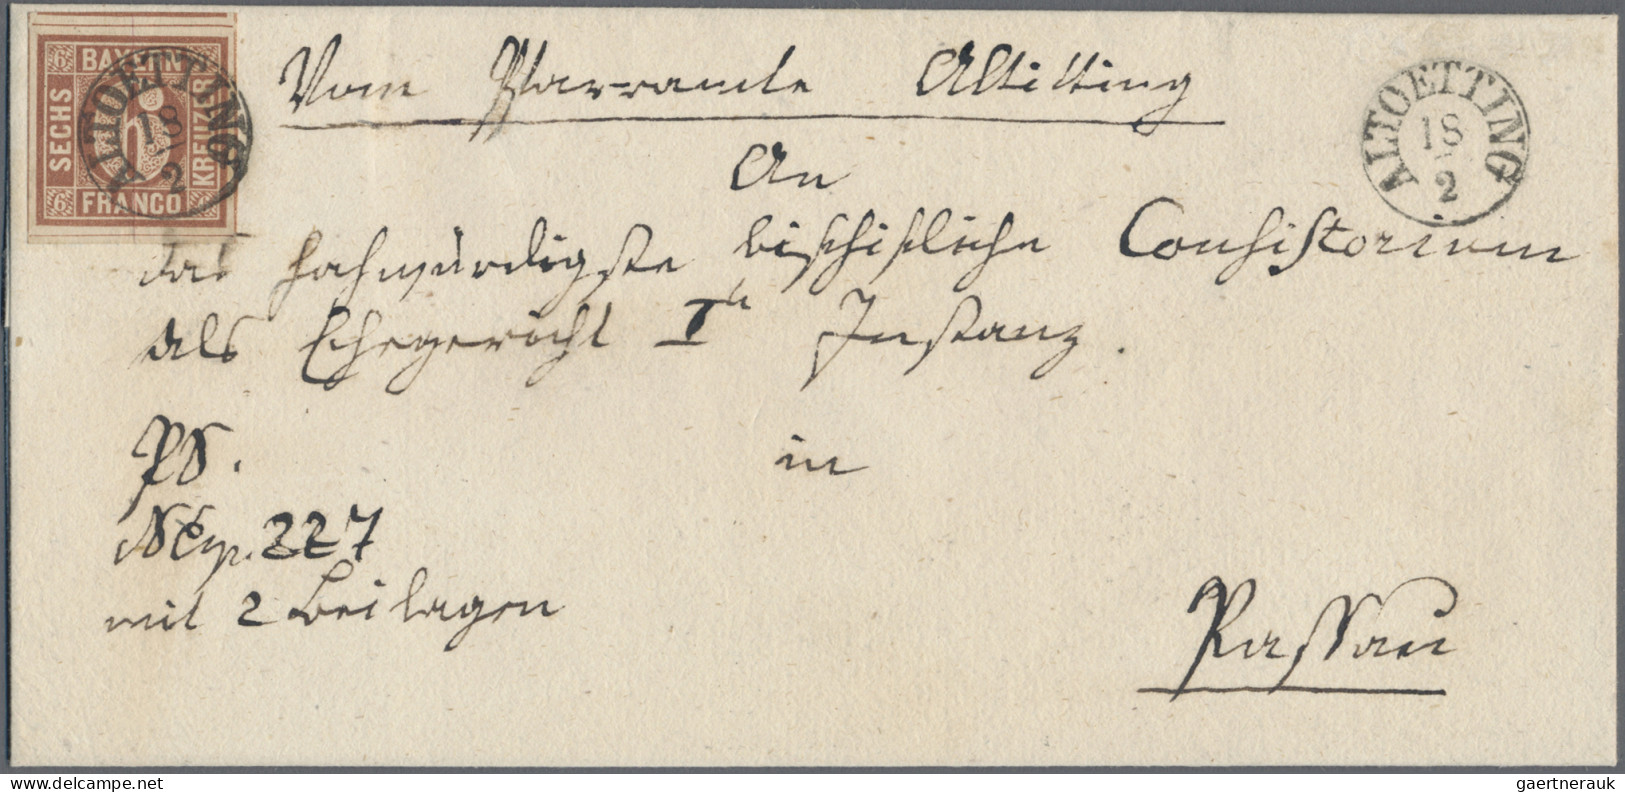 BAYERN
SECHS
KREUZER
FRANCO
6
6
6
ALTOETTING
18
2
Vom Pfarramte Altötting
ALTOETTING
18
2
An
das hochwürdigste bischöfliche Consistorium
als Ehegericht I Instanz.
PS.
in
Nr. Exp. 227
mit 2 Beilagen
Passau
www.delcampe.net
gaertnerauk